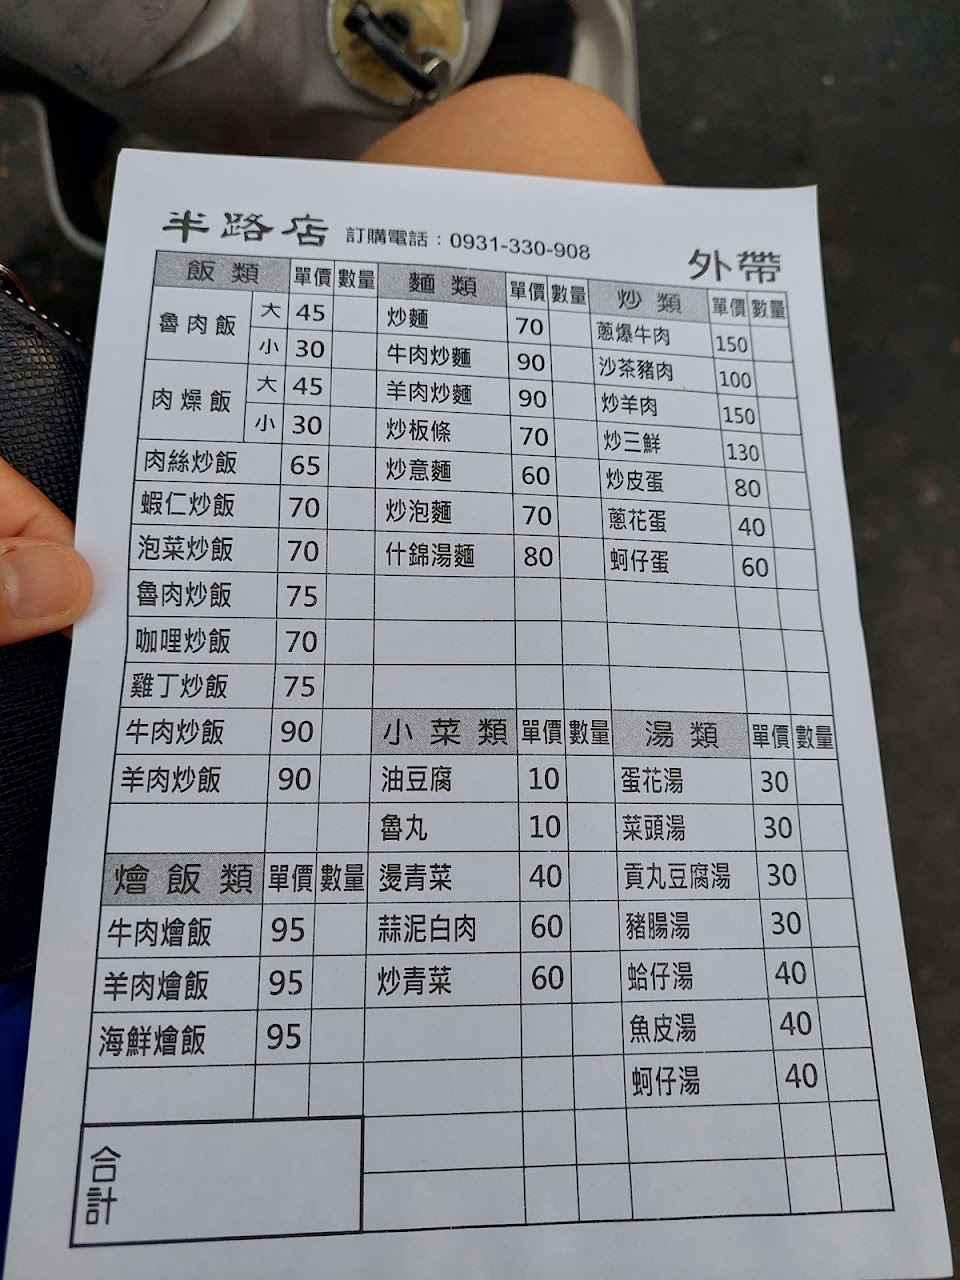 半路店 訂購電話：0931-330-908 外帶
飯類 單價 數量
魯肉飯 大 45
小 30
肉燥飯 大 45
小 30
肉絲炒飯 65
蝦仁炒飯 70
泡菜炒飯 70
魯肉炒飯 75
咖哩炒飯 70
雞丁炒飯 75
牛肉炒飯 90
羊肉炒飯 90
燴飯類 單價 數量
牛肉燴飯 95
羊肉燴飯 95
海鮮燴飯 95
合計
麵類 單價 數量
炒麵 70
牛肉炒麵 90
羊肉炒麵 90
炒板條 70
炒意麵 60
炒泡麵 70
什錦湯麵 80
小菜類 單價 數量
油豆腐 10
魯丸 10
燙青菜 40
蒜泥白肉 60
炒青菜 60
炒類 單價 數量
蔥爆牛肉 150
沙茶豬肉 100
炒羊肉 150
炒三鮮 130
炒皮蛋 80
蔥花蛋 40
蚵仔蛋 60
湯類 單價 數量
蛋花湯 30
菜頭湯 30
貢丸豆腐湯 30
豬腸湯 30
蛤仔湯 40
魚皮湯 40
蚵仔湯 40